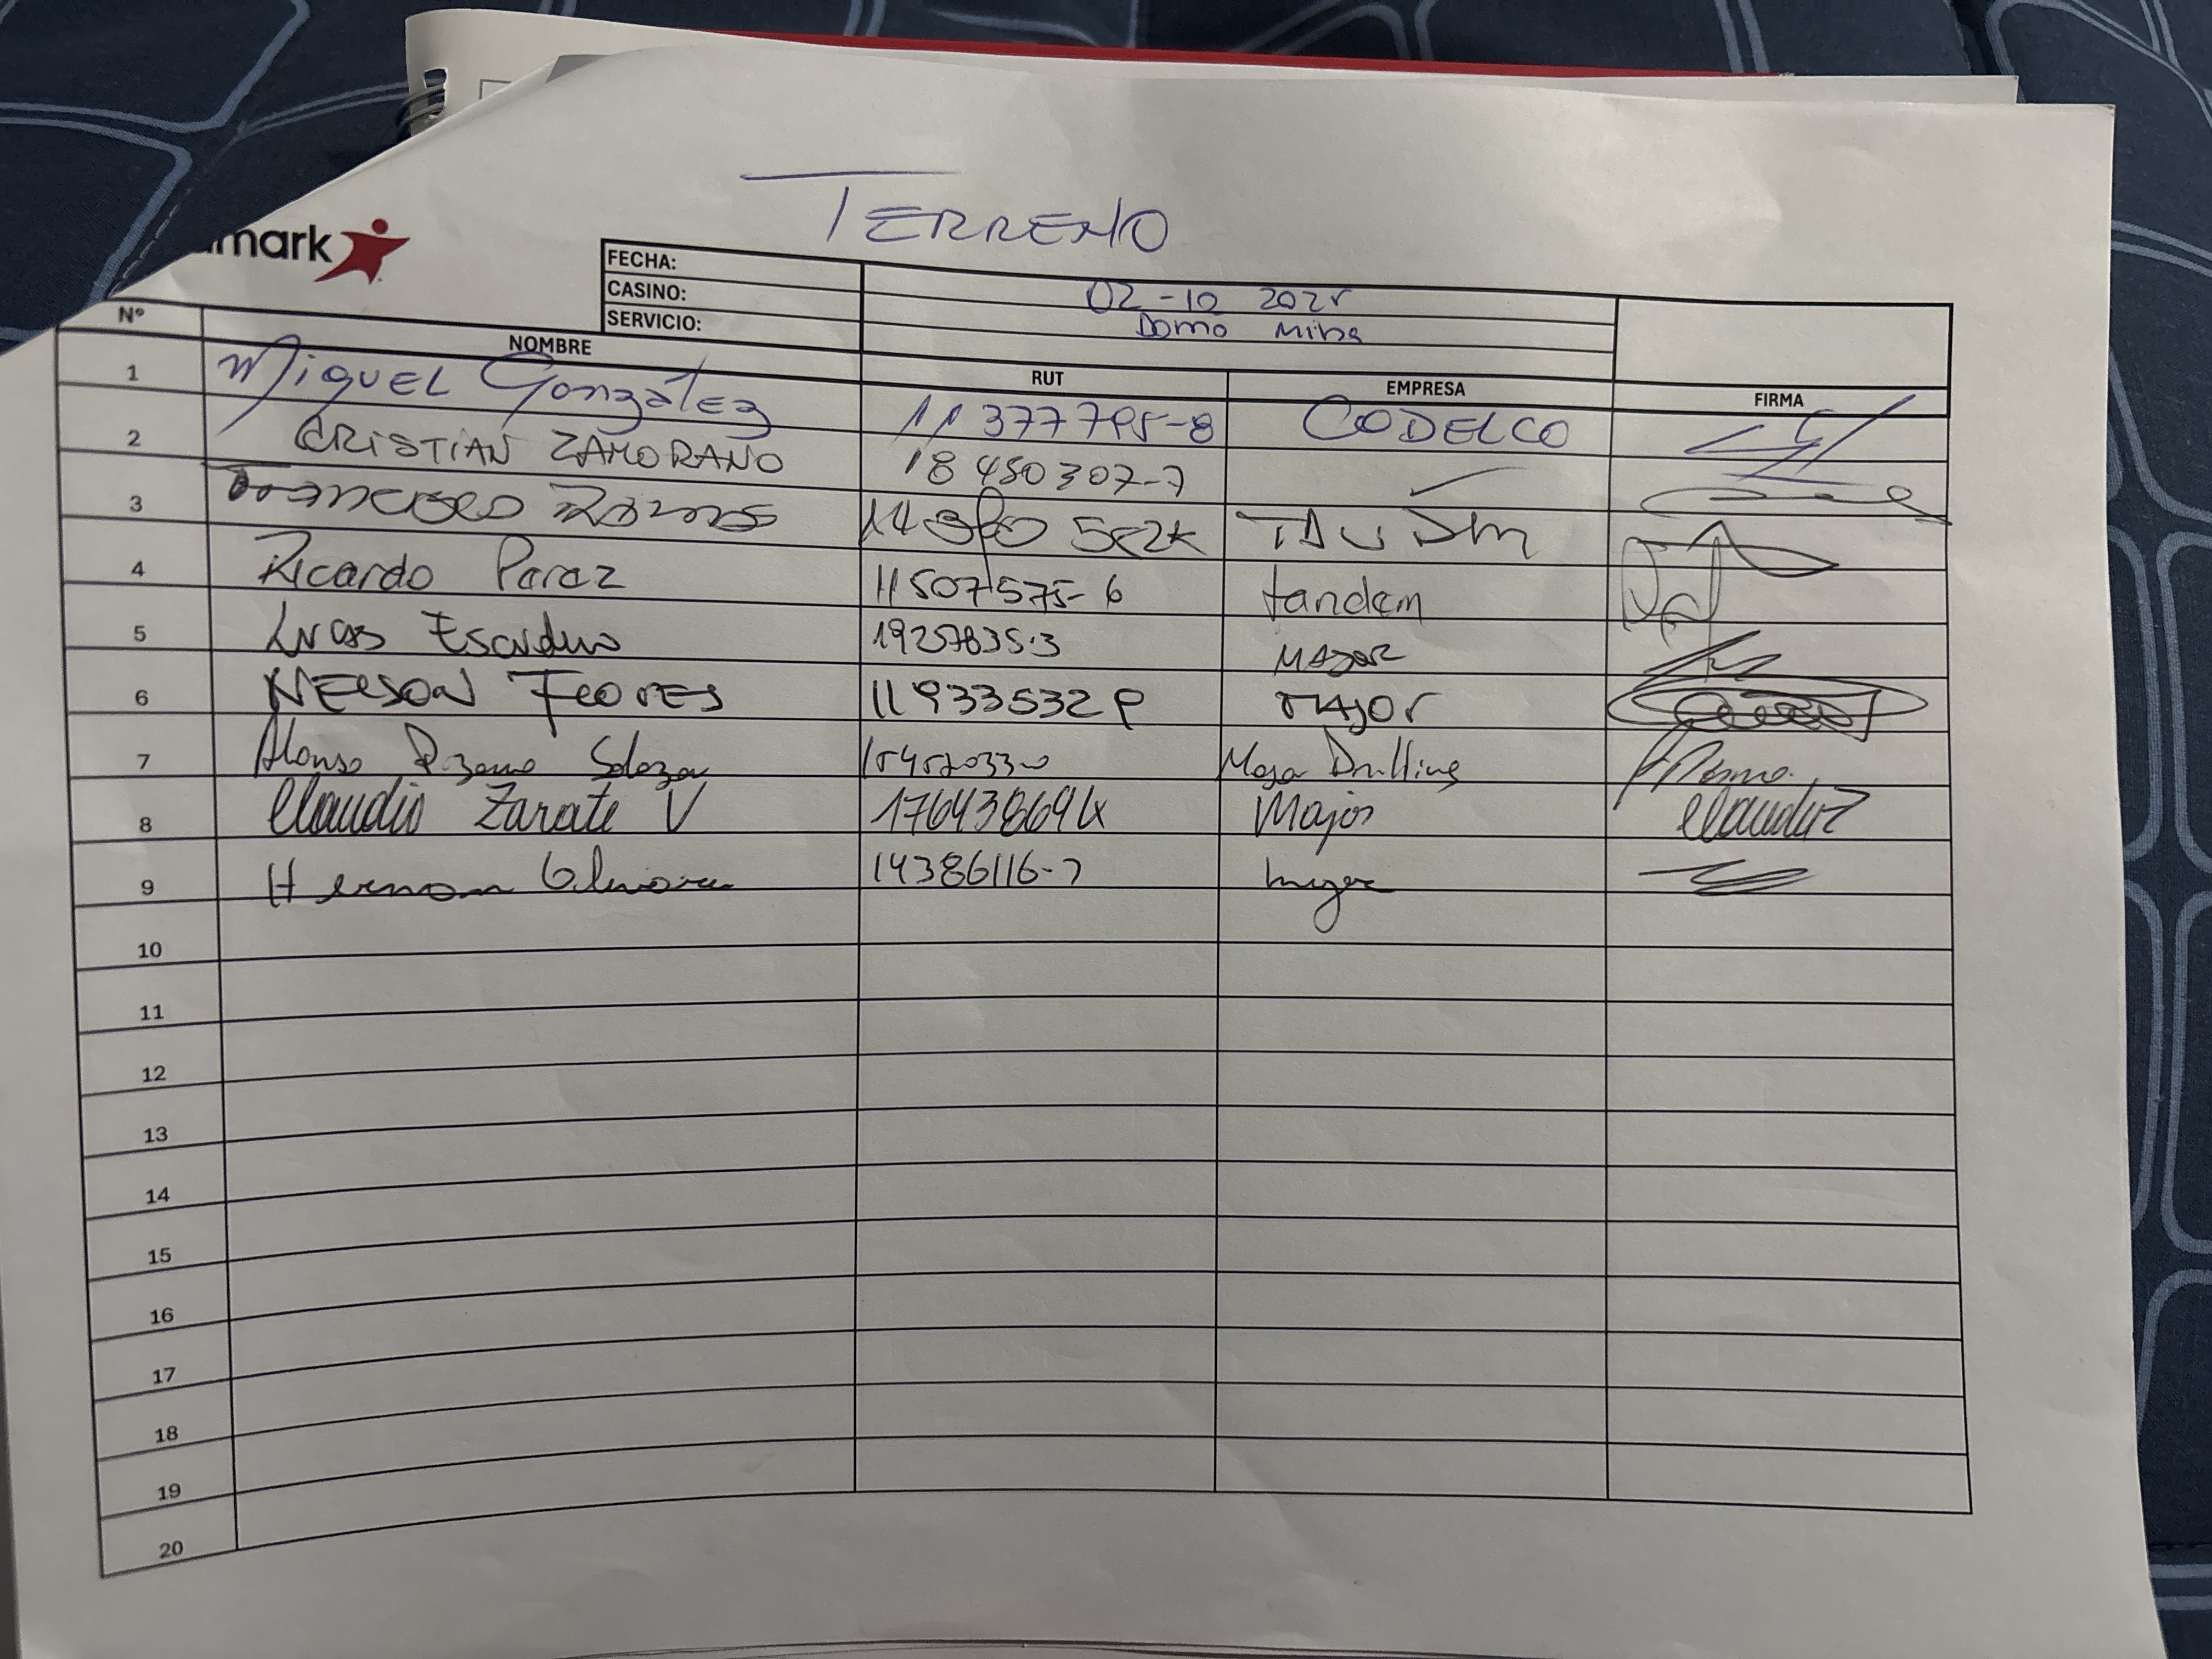 TERRENO
mark
FECHA: 02-10 2025
CASINO: Domo Mina
SERVICIO:
Nº NOMBRE RUT EMPRESA FIRMA
1 Miguel González 11 377795-8 CODELCO
2 CRISTIAN ZAMORANO 18 450307-7 ✓
3
4 Ricardo Paraz 11507575-6 tandem
5 Lucas Escudero 19257835-3 MAJOR
6 NELSON FLORES 11933532 MAJOR
7 Alonso Salazar Major Drilling
8 Claudio Zarate V 17643869 Major ClaudioZ
9 Hernan Olivares 14386116-7 major
10
11
12
13
14
15
16
17
18
19
20